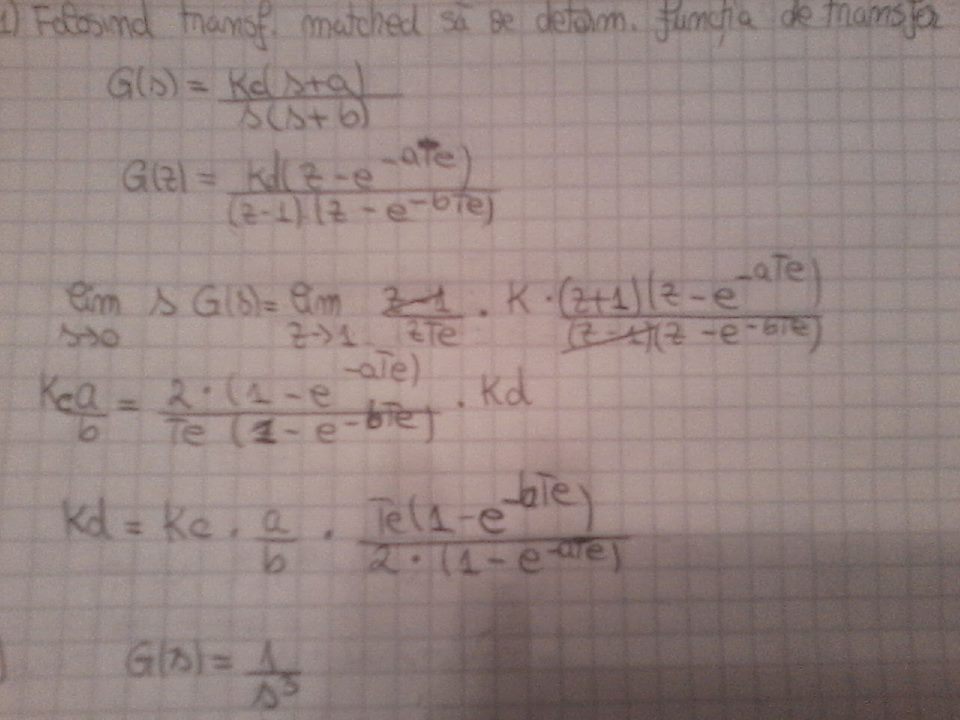 1) Folosind transf. matched să se determ. funcția de transfer
G(s) = Kd(s+a) / s(s+b)
G(z) = Kd(z-e^-aTe) / (z-1)(z-e^-bTe)
lim s→0 s G(s) = lim z→1 z-1 / zTe · K · (z+1)(z-e^-aTe) / (z-1)(z-e^-bTe)
Kc a/b = 2·(1-e^-aTe) / Te (1-e^-bTe) · Kd
Kd = Kc · a/b · Te(1-e^-bTe) / 2·(1-e^-aTe)
G(s) = 1/s^3